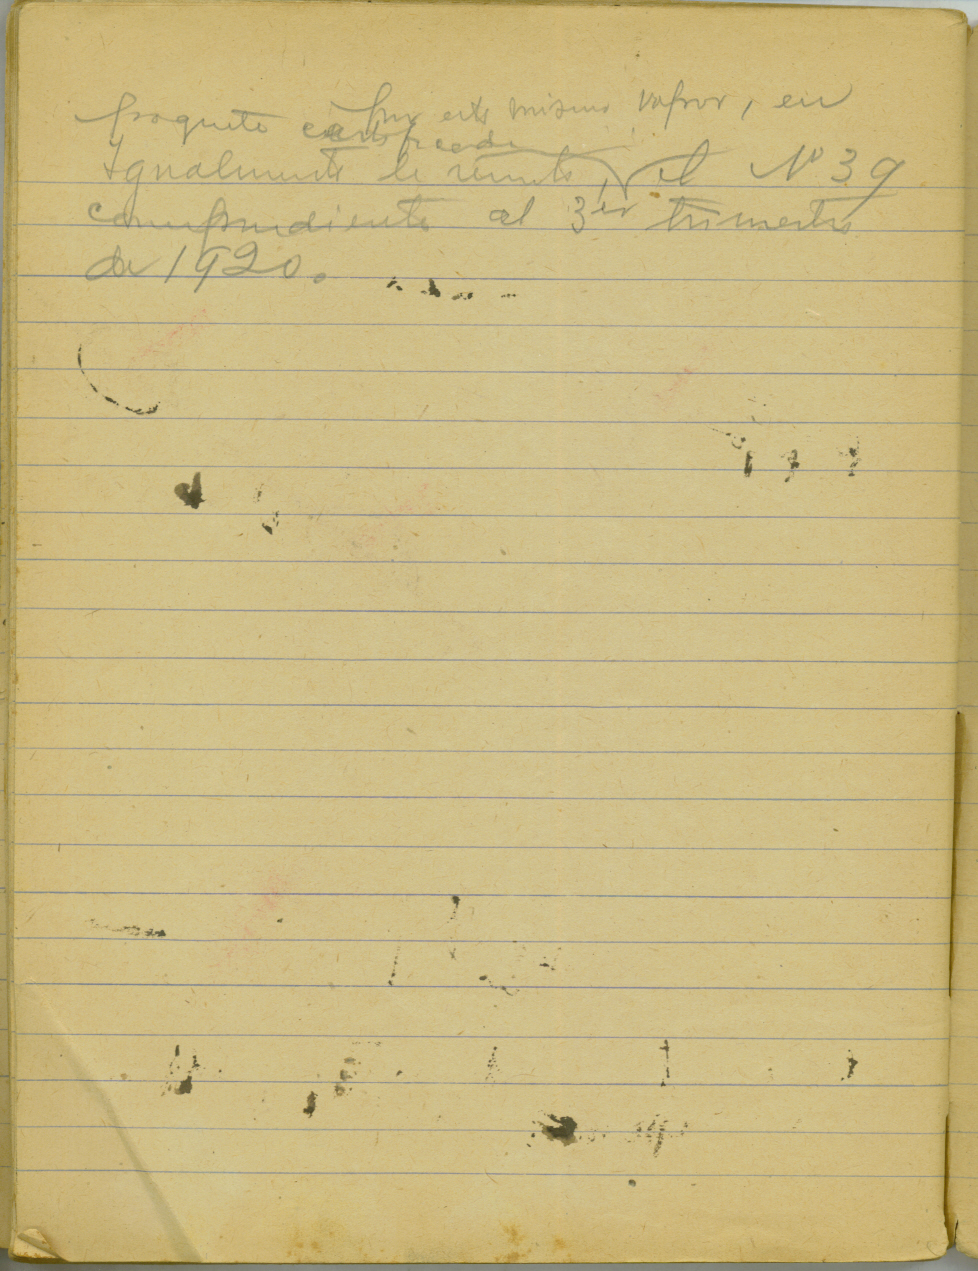 por este mismo vapor, en
paquete certificado
Igualmente le remito, el Nº 39
correspondiente al 3er trimestre
de 1920.